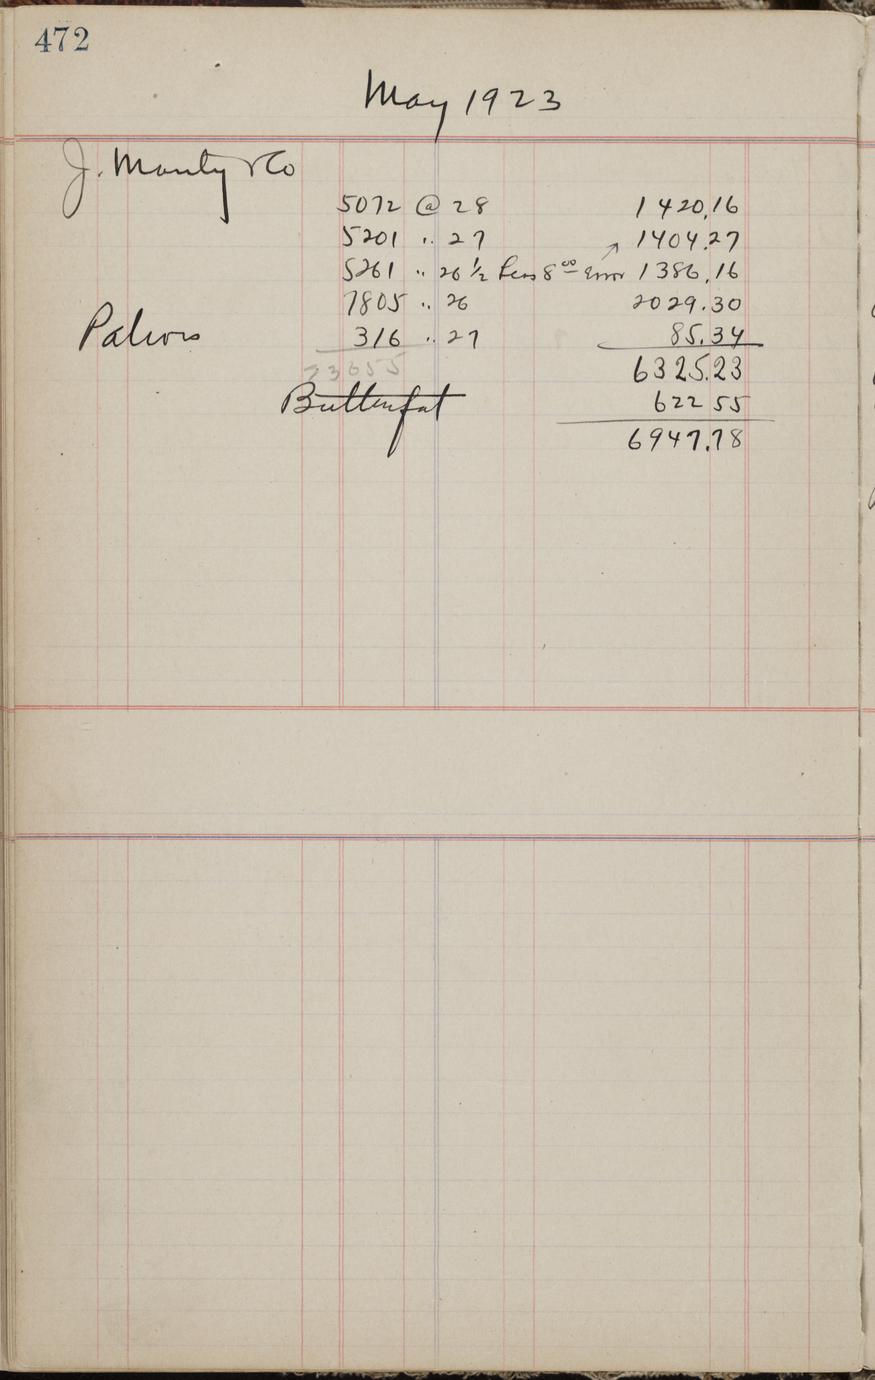 472
May 1923
J. Manty & Co
5072 @ 28 1420,16
5201 " 27 1404.27
5261 " 26 1/2 Less 8 00 Error 1386,16
7805 " 26 2029.30
Patrons 316 " 27 85.34
23655 6325.23
Butterfat 622 55
6947.78